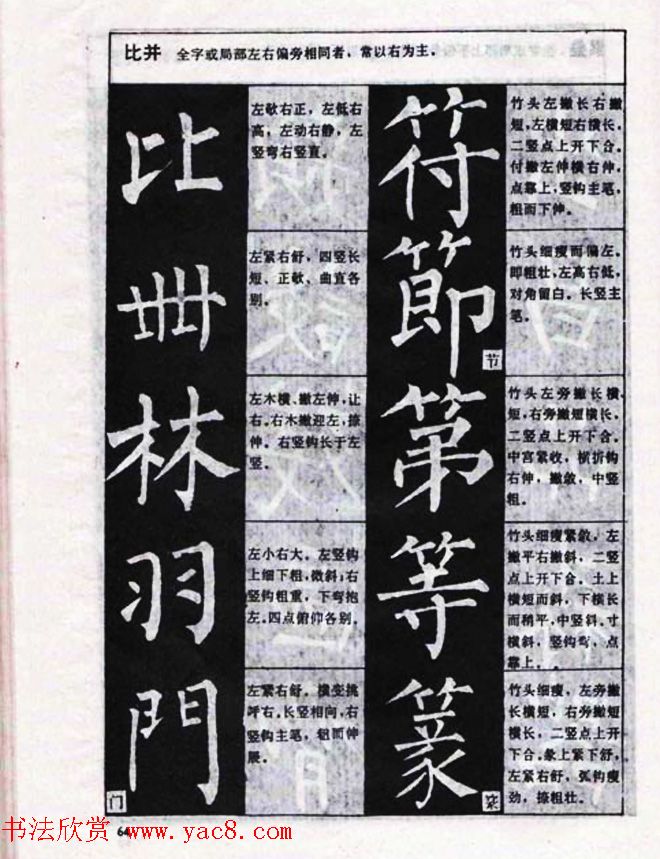 比并 全字或局部左右偏旁相同者，常以右为主．
比
左敧右正，左低右
高，左动右静，左
竖弯右竖直．
卌
左紧右舒，四竖长
短、正敧、曲直各
别．
林
左木横、撇左伸，让
右．右木撇迎左，捺
伸．右竖钩长于左
竖．
羽
左小右大．左竖钩
上细下粗，微斜；右
竖钩粗重，下弯抱
左．四点俯仰各别．
門
门
左紧右舒．横变挑
呼右．长竖相向，右
竖钩主笔，粗而伸
展．
符
竹头左撇长右撇
短，左横短右横长．
二竖点上开下合．
付撇左伸横右伸，
点靠上，竖钩主笔，
粗而下伸．
節
节
竹头细瘦而偏左．
即粗壮，左高右低，
对角留白．长竖主
笔．
第
竹头左旁撇长横
短，右旁撇短横长，
二竖点上开下合．
中宫紧收，横折钩
右伸，撇敛，中竖
粗．
等
竹头细瘦紧敛，左
撇平右撇斜，二竖
点上开下合．土上
横短而斜，下横长
而稍平，中竖斜．寸
横斜，竖钩弯，点
靠上．
篆
竹头细瘦，左旁撇
长横短，右旁撇短
横长，二竖点上开
下合．彖上紧下舒，
左紧右舒，弧钩瘦
劲，捺粗壮．
64
书法欣赏 www.yac8.com